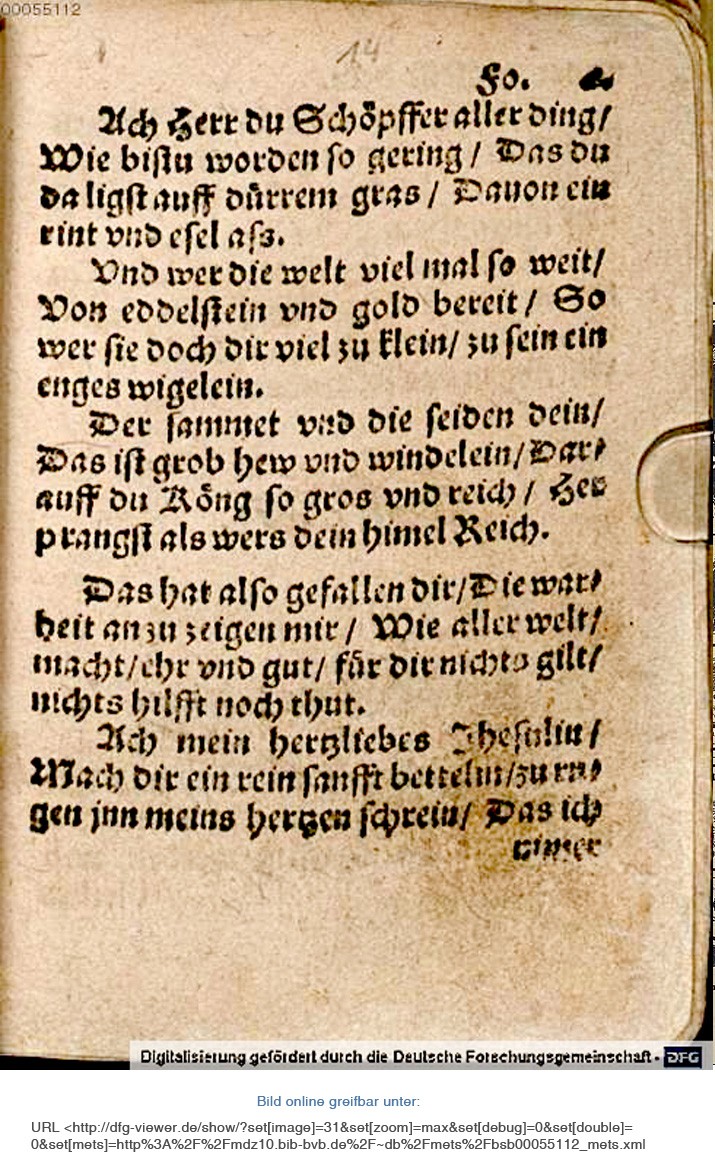 00055112
14
Fo.
Ach Herr du Schöpffer aller ding/
Wie bistu worden so gering / Das du
da ligst auff dürrem gras / Dauon ein
rint vnd esel ass.
Vnd wer die welt viel mal so weit/
Von eddelstein vnd gold bereit / So
wer sie doch dir viel zu klein/ zu sein ein
enges wigelein.
Der sammet vnd die seiden dein/
Das ist grob hew vnd windelein/Dar-
auff du Köng so gros vnd reich / Her
prangst als wers dein himel Reich.
Das hat also gefallen dir/Die war-
heit an zu zeigen mir / Wie aller welt/
macht/ehr vnd gut/ für dir nichts gilt/
nichts hilfft noch thut.
Ach mein hertzliebes Jhesulin/
Mach dir ein rein sanfft bettelin/zu ru-
gen jnn meins hertzen schrein/ Das ich
nimer
Digitalisierung gefördert durch die Deutsche Forschungsgemeinschaft - DFG
Bild online greifbar unter:
URL <http://dfg-viewer.de/show/?set[image]=31&set[zoom]=max&set[debug]=0&set[double]=
0&set[mets]=http%3A%2F%2Fmdz10.bib-bvb.de%2F~db%2Fmets%2Fbsb00055112_mets.xml